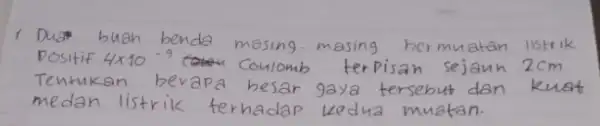 1 Dua buah benda masing-masing bermuatan listrik
Positif 4x10 -9 Coulomb terpisan sejaun 2cm
Tentukan berapa besar gaya tersebut dan kuat
medan listrik terhadap kedua muatan.